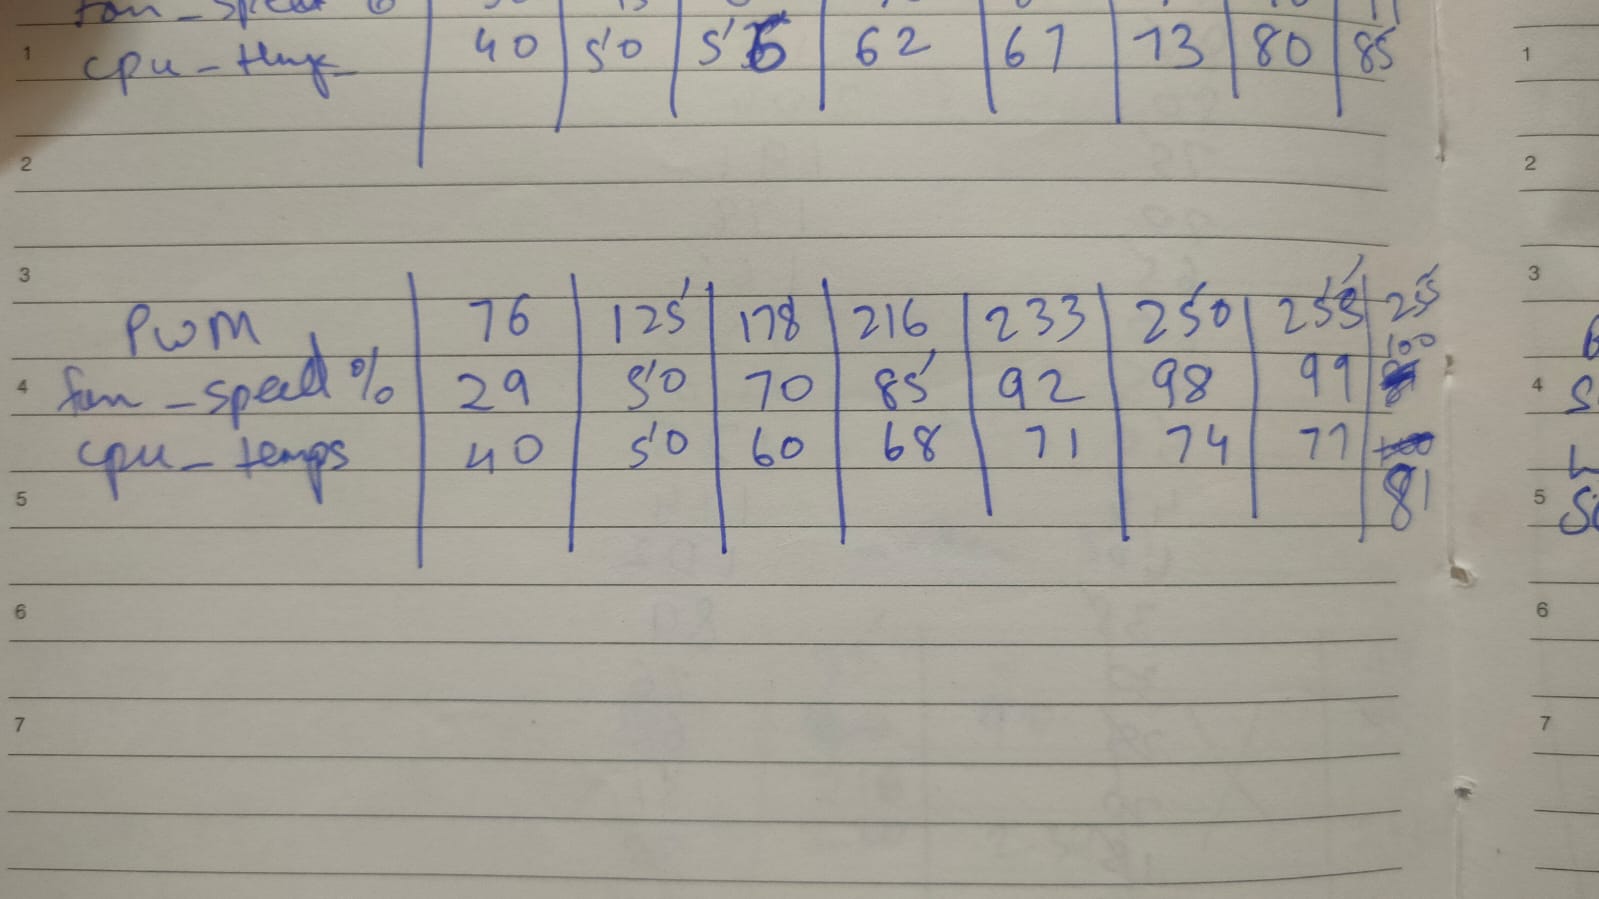 cpu_temps 40 50 56 62 67 73 80 85
1 1
2 2
3 3
PWM 76 125 178 216 233 250 253 255
4 fan_speed % 29 50 70 85 92 98 99 100 4
cpu_temps 40 50 60 68 71 74 77 81
5 5
6 6
7 7